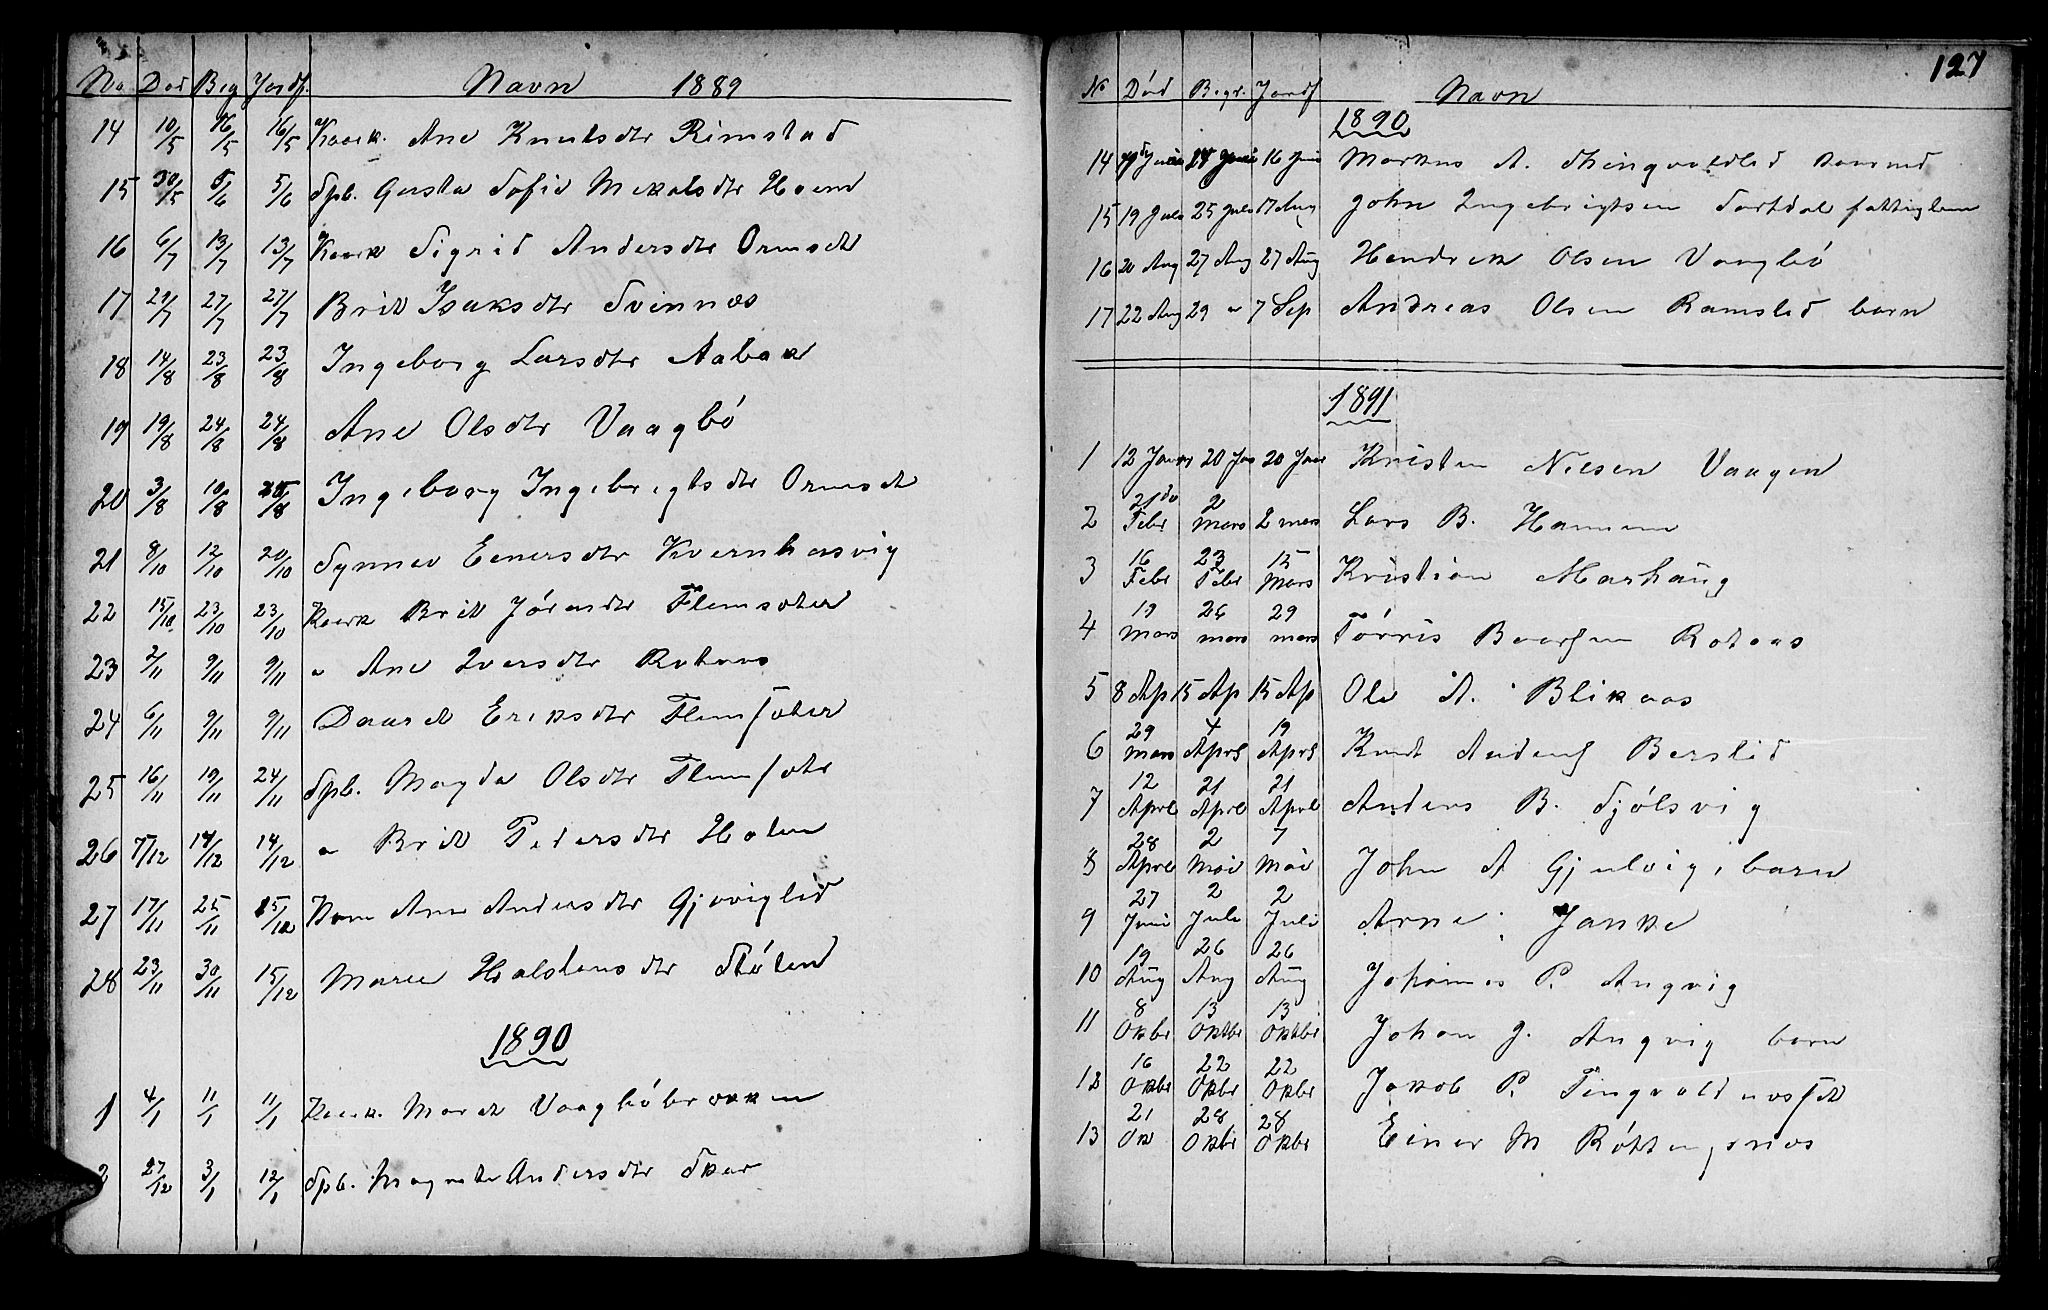 No Død Beg Jordf. Navn 1889
14 10/5 16/5 16/5 Kaark. Ane Knutsdtr Rimstad
15 30/5 5/6 5/6 Spb. Gusta Sofie Mekalsdtr Hoem
16 6/7 13/7 13/7 Kaark Sigrid Andersdtr Ormset
17 21/7 27/7 27/7 Brit Isaksdtr Svinnæs
18 14/8 23/8 23/8 Ingeborg Larsdtr Aabak
19 19/8 24/8 24/8 Ane Olsdtr Vaagbó
20 3/8 10/8 /8 Ingeborg Ingebrigtsdtr Ormset
21 8/10 12/10 20/10 Synnev Einersdtr Kvernhasvig
22 15/10 23/10 23/10 Kaark Brit Jórensdtr Flemsæter
23 2/11 9/11 9/11 " Ane Iversdtr Rotaas
24 6/11 9/11 9/11 Baaret Eriksdtr Flemsæter
25 16/11 19/11 24/11 Spb. Magda Olsdtr Flemsætr
26 7/12 14/12 14/12 " Brit Pedersdtr Holem
27 17/11 25/11 15/12 Kone Ane Andersdtr Gjøviglid
28 23/11 30/11 15/12 Marie Halstensdtr Stólen
1890
1 4/1 11/1 11/1 Kaark. Maret Vaagbóbrækken
2 27/12 3/1 12/1 Spb. Magnete Andersdtr Skar
127
No Dód Begr. Jordf Navn
1890
14 Juni Juni 16 Juni Markus A. Thingvoldlid
15 19 Juli 25 Juli 17 Aug John Ingebrigtsen Sortdal fattiglem
16 20 Aug 27 Aug 27 Aug Hendrek Olsen Vaagbó
17 22 Aug 29 " 7 Sep Andreas Olsen Ramslid barn
1891
1 12 Januar 20 Jan 20 Jan Kristen Nilsen Vaagen
2 21de Febr 2 Mars 2 mars Lars B. Hammen
3 16 Febr 23 Febr 15 Mars Kristian Marhaug
4 19 Mars 26 mars 29 mars Tórris Baarsen Rotaas
5 8 Ap 15 Ap 15 Ap Ole A. Blikaas
6 29 mars 4 Aprl 19 Aprl Knut Andens Berslid
7 12 Aprl 21 Aprl 21 Aprl Anders B. Sjólsvig
8 28 Aprl 2 Mai 7 Mai John A Gjulvig, barn
9 27 Juni 2 Juli 2 Juli Arne Janke
10 19 Aug 26 Aug 26 Aug Johannes P. Angvig
11 8 Okbr 13 Oktbr 13 Oktbr Johan J. Angvig barn
12 16 Okbr 22 Okbr 22 Okbr Jakob P. Tingvoldnæsset
13 21 Ok 28 Okbr 28 Okbr Einer M Róttingsnæs